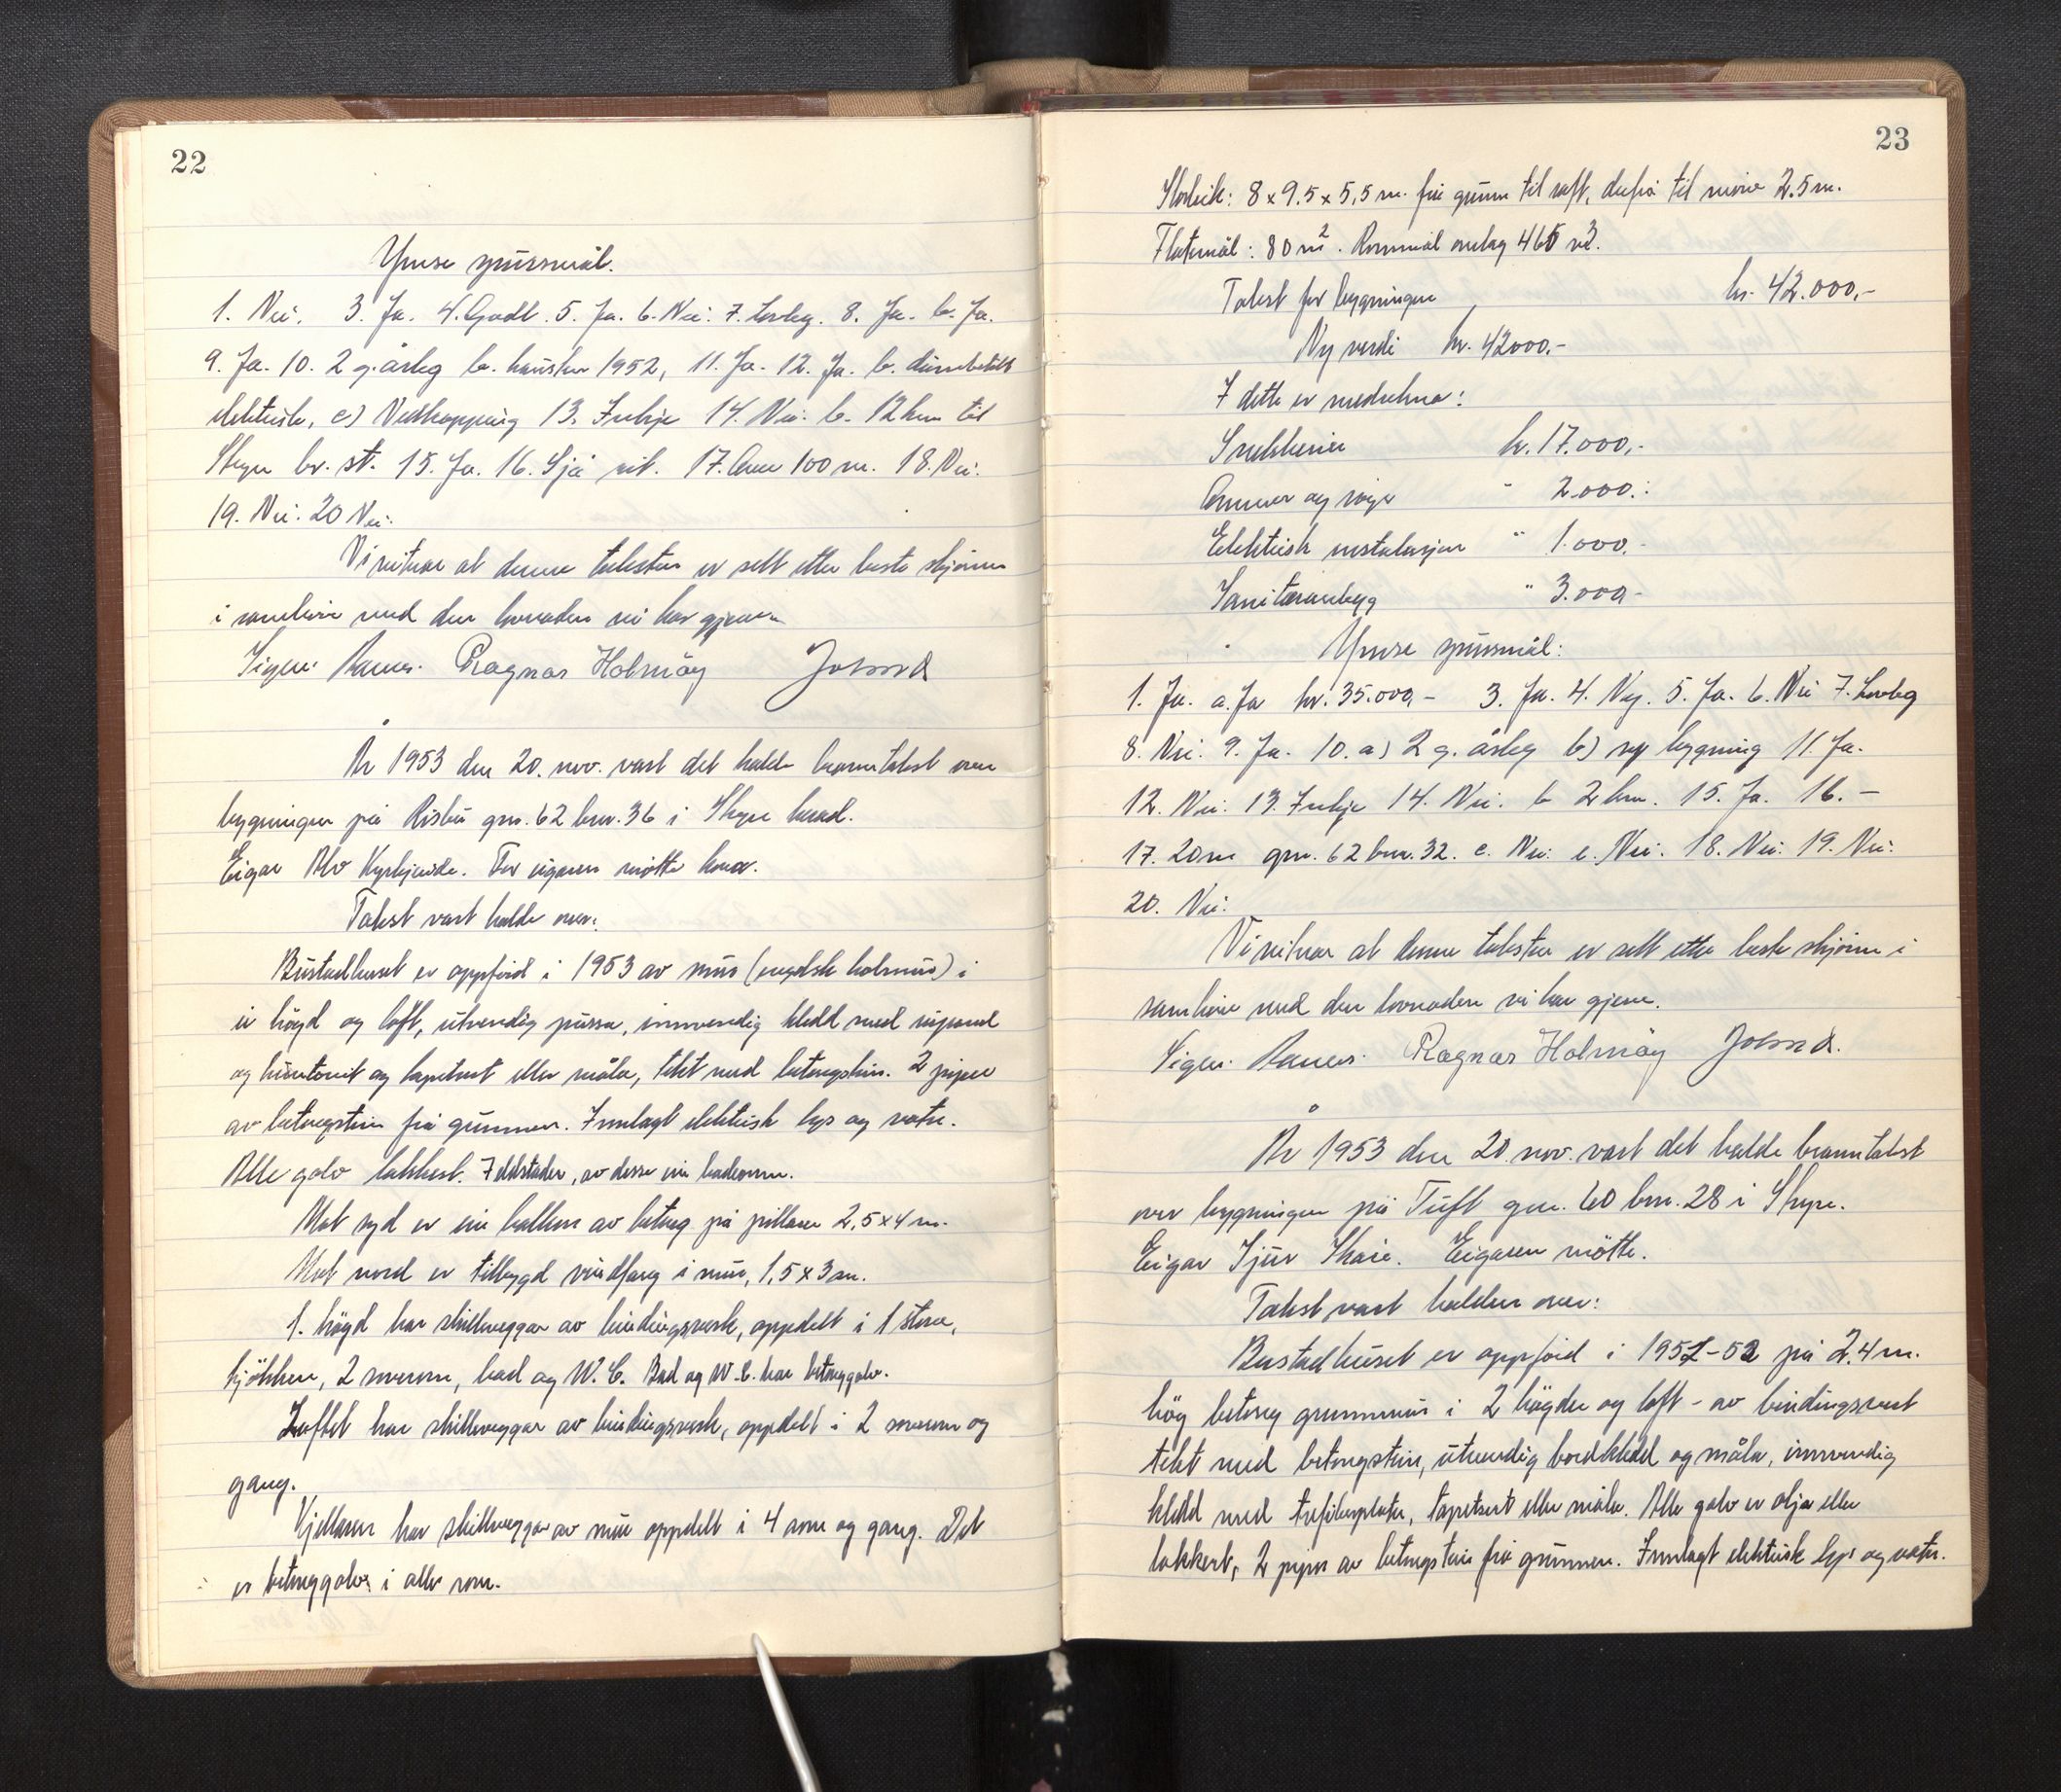 22
Ymse spursmål.
1. Nei. 3. Ja. 4. Godt. 5. Ja. 6. Nei. 7. Lovleg. 8. Ja. b. Ja.
9. Ja. 10. 2 g. årleg b. hausten 1952, 11. Ja. 12. Ja. b.
elektrisk, c) Vedhopping 13. Inkje 14. Nei. b. 12 km til
Stryn br. st. 15. Ja. 16. Sjå 17. Over 100 m. 18. Nei.
19. Nei. 20 Nei.
Vi vitnar at denne taksten er sett etter beste skjønn
i samhøve med den lovnaden vi har gjeve
Sigur. Ragnar Holmøy
År 1953 den 20. nov. vart det halde branntakst over
bygningen på Risbu gnr. 62 bnr. 36 i Stryn herad.
Eigar Alv Kyrkjeeide. For eigaren møtte kona.
Takst vart halde over:
Bustadhuset er oppførd i 1953 av mur (engelsk holmur) i
ei høgd og loft, utvendig pussa, innvendig kledd med
og huntonit og tapetsert eller måla, tekt med betongstein. 2 piper
av betongstein frå grunnen. Innlagt elektrisk lys og vatn.
Alle golv lakkert. 7 eldstader, av desse ein badeomn.
Mot syd er ein balkon av betong på pillarer 2,5 x 4 m.
Mot nord er tilbygd vindfang i mur, 1,5 x 3 m.
1. høgd har skilleveggar av bindingsverk, oppdelt i 1 stove,
kjøkken, 2 soverom, bad og W.C. Bad og W.C. har betonggolv.
Loftet har skilleveggar av bindingsverk, oppdelt i 2 soverom og
gang.
Kjellaren har skilleveggar av mur oppdelt i 4 rom og gang. Det
er betonggolv i alle rom.
23
Storleik: 8 x 9.5 x 5,5 m. frå grunn til raft, derfrå til møne 2.5 m.
Flatemål: 80 m². Rommål omlag 465 m³.
Takst for bygningen kr. 42.000,-
Ny verdi kr. 42000.-
I dette er medrekna:
Snekkerier kr. 17.000,-
Omner og " 2.000.-
Elektrisk instalasjon " 1.000.-
Sanitæranlegg " 3.000,-
Ymse spursmål:
1. Ja. a. Ja kr. 35.000,- 3. Ja. 4. Ny. 5. Ja. 6. Nei 7. Lovleg
8. Nei. 9. Ja. 10. a) 2 g. årleg b) ny bygning 11. Ja.
12. Nei. 13. Inkje 14. Nei. b 2 km. 15. Ja. 16. –
17. 20 m gnr. 62 bnr. 32. c. Nei. e. Nei. 18. Nei. 19. Nei.
20. Nei.
Vi vitnar at denne taksten er sett etter beste skjønn i
samhøve med den lovnaden vi har gjeve.
Sigur. Ragnar Holmøy
År 1953 den 20. nov. vart det halde branntakst
over bygningen på Tuft gnr. 60 bnr. 28 i Stryn.
Eigar Sjur Skåre. Eigaren møtte.
Takst vart halden over:
Bustadhuset er oppførd i 1951-52 på 2.4 m.
høg betong grunnmur i 2 høgder og loft – av bindingsverk
tekt med betongstein, utvendig bordkledd og måla, innvendig
kledd med trefiberplater, tapetsert eller måla. Alle golv er olja eller
lakkert, 2 piper av betongstein frå grunnen. Innlagt elektrisk lys og vatn.